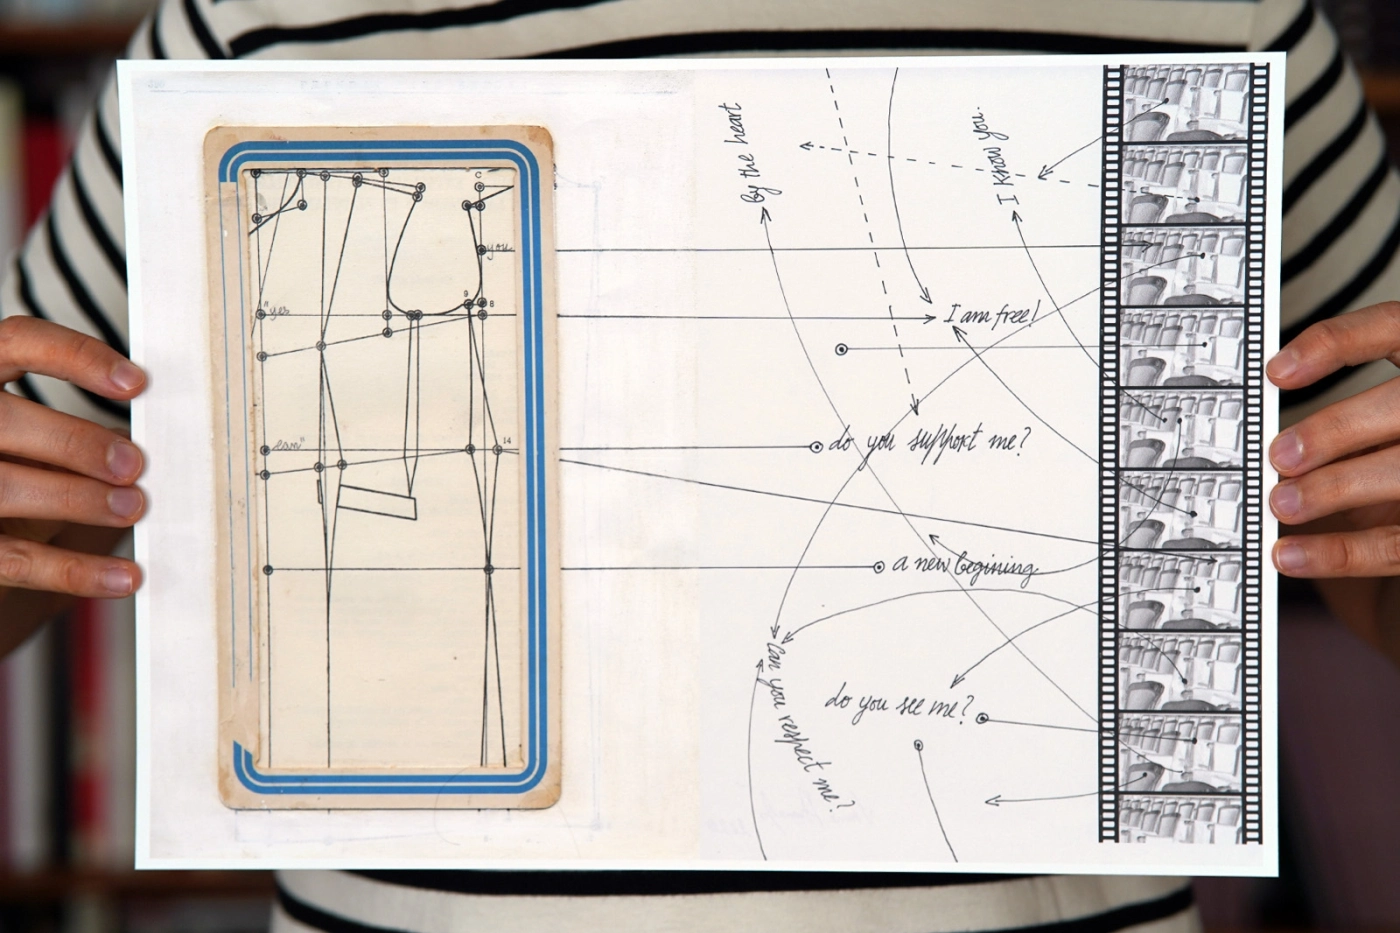 by the heart
I know you.
C
you
"yes
9
8
I am free!
can"
14
do you support me?
a new begining
Can you respect me?
do you see me?